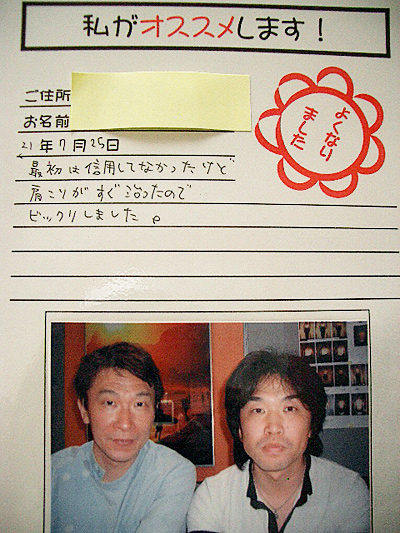 私がオススメします！
ご住所
お名前
よくなり
ました
21年7月25日
最初は信用してなかったけど
肩こりがすぐ治ったので
ビックリしました。